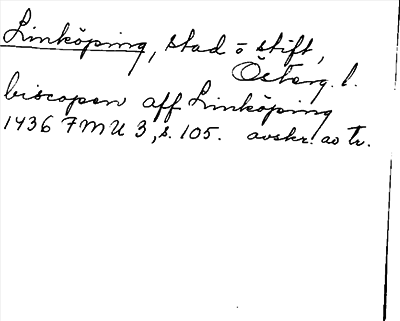 Linköping, stad o stift,
Österg. l.
biscopen aff Linköping
1436 FMU 3, s. 105. avskr. av tr.